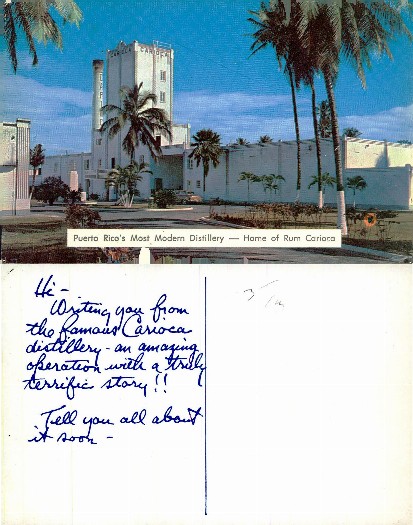 CARIOCA
Puerto Rico's Most Modern Distillery — Home of Rum Carioca
Hi-
Writing you from
the famous Carioca
distillery - an amazing
operation with a truly
terrific story!!
Tell you all about
it soon -